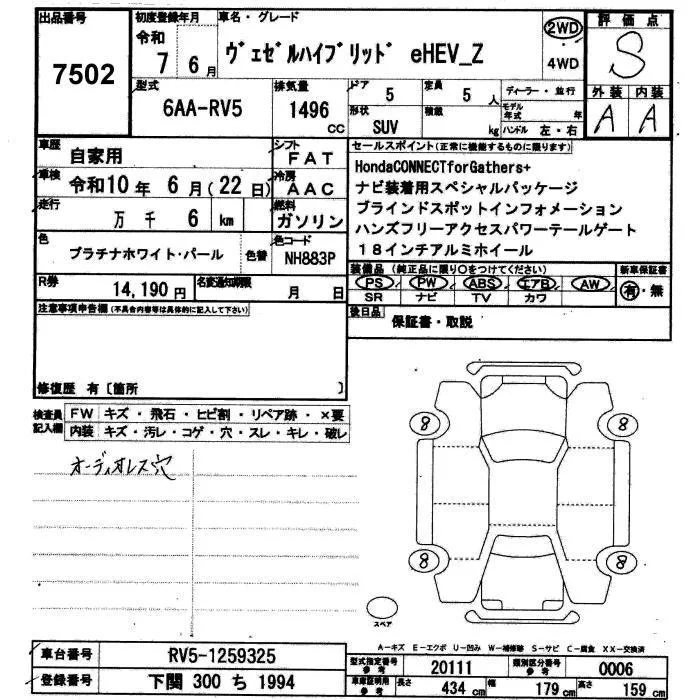 出品番号 初度登録年月 車名・グレード 2WD 評価点
7502 令和 7 6月 ヴェゼルハイブリッド eHEV_Z 4WD S
型式 排気量 ドア 定員 ディーラー・並行 外装 内装
6AA-RV5 1496 cc 5 5 人 モデル年式 年 A A
形状 SUV 積載 kg ハンドル 左・右
車歴 自家用 シフト FAT セールスポイント(正常に機能するものに限ります)
車検 令和10年 6月(22日) 冷房 AAC HondaCONNECTforGathers+
ナビ装着用スペシャルパッケージ
走行 万 千 6 km 燃料 ガソリン ブラインドスポットインフォメーション
ハンズフリーアクセスパワーテールゲート
色 プラチナホワイト・パール 色替 色コード NH883P 18インチアルミホイール
R券 14,190円 名変通知期限 月 日 装備品(純正品に限り○をつけてください) 新車保証書
PS PW ABS エアB AW 有・無
SR ナビ TV カワ
注意事項申告欄(不具合内容等は具体的に記入して下さい) 後日品 保証書・取説
修復歴 有〔箇所 〕
検査員記入欄 FW キズ・飛石・ヒビ割・リペア跡・×要
内装 キズ・汚レ・コゲ・穴・スレ・キレ・破レ
オーディオレス穴
8 8
8 8
スペア
A-キズ E-エクボ U-凹み W-補修跡 S-サビ C-腐食 XX-交換済
車台番号 RV5-1259325 型式指定番号 参考 20111 類別区分番号 参考 0006
登録番号 下関 300 ち 1994 車庫証明用 参考 長さ 434 cm 幅 179 cm 高さ 159 cm